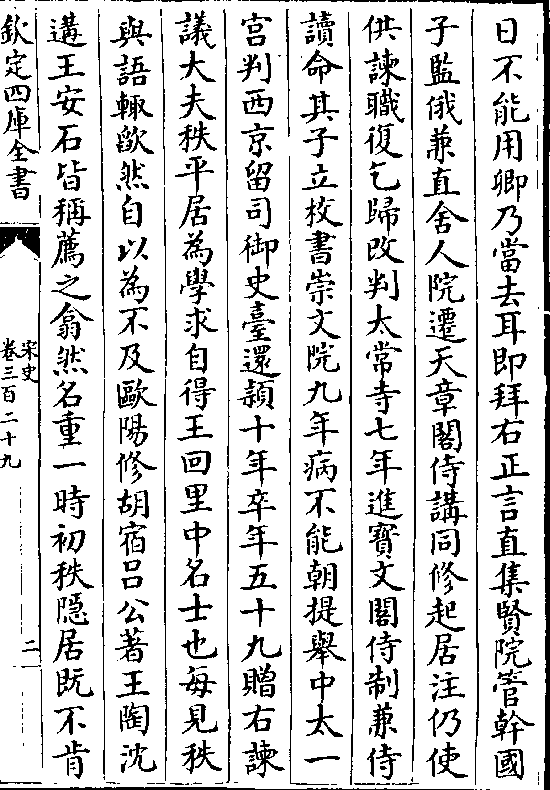 日不能用卿乃當去耳即拜右正言直集賢院管幹國
子監俄兼直舍人院遷天章閣侍講同修起居注仍使
供諫職復乞歸改判太常寺七年進寳文閣待制兼侍
讀命其子立校書崇文院九年病不能朝提舉中太一
宫判西京留司御史臺還頴十年卒年五十九贈右諫
議大夫秩平居為學求自得王回里中名士也每見秩
與語輙歛然自以為不及歐陽修胡宿吕公著王陶沈
遘王安石皆稱薦之翕然名重一時初秩隱居既不肯
欽定四庫全書
宋史
卷三百二十九
二